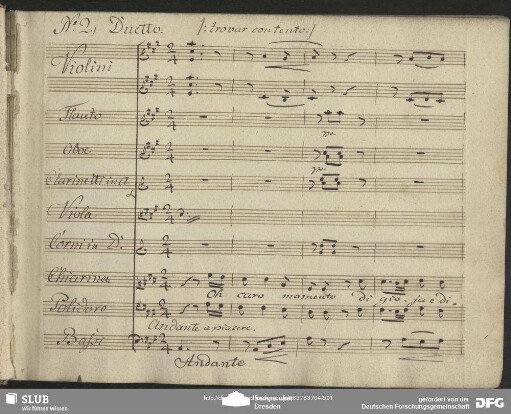 No. 2. Duetto. /: trovar contento :/
Violini
Flauto
Oboe
Clarinetti in A
Viola
Corni in D.
Chiarina
Oh caro momento di gio- ja è di-
Polidoro
Andante a piacere.
Bassi
Andante
SLUB
Wir führen Wissen.
Dresden
gefördert von der
Deutschen Forschungsgemeinschaft
DFG